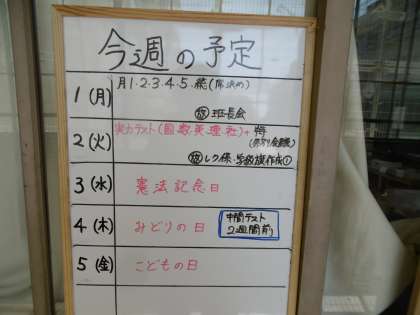 今週の予定
1(月) 月・1・2・3・4・5・総(席決め)
放 班長会
2(火) 実力テスト(国数英理社)+特
放 レク係・学級旗作成①
3(水) 憲法記念日
4(木) みどりの日
中間テスト
2週間前
5(金) こどもの日